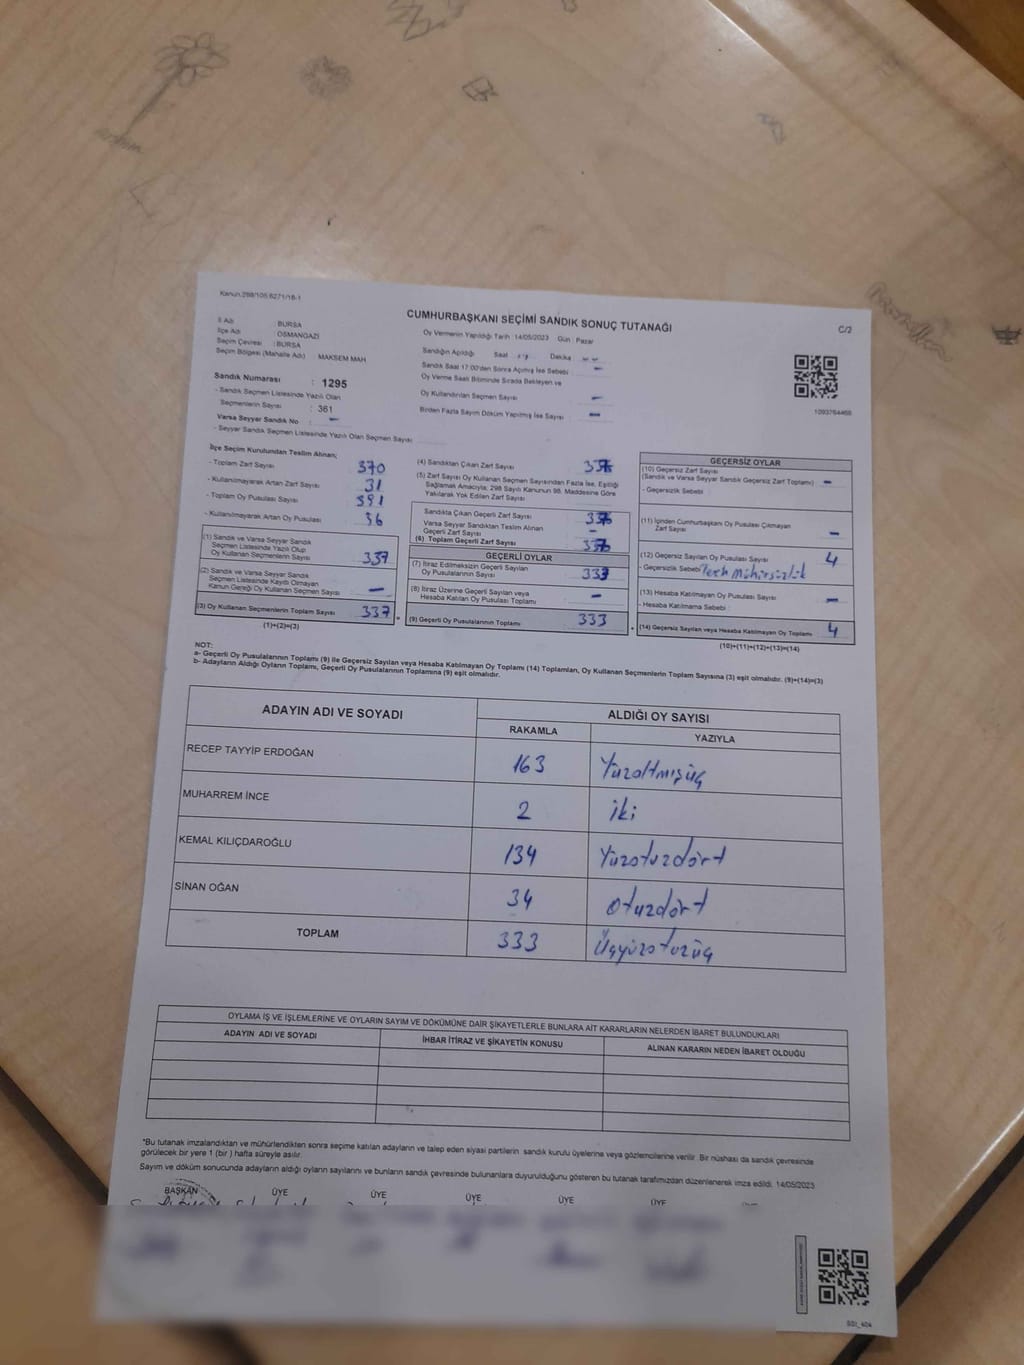 Kanun,298/105,6271/18-1
CUMHURBAŞKANI SEÇİMİ SANDIK SONUÇ TUTANAĞI
C/2
İl Adı : BURSA
İlçe Adı : OSMANGAZİ
Seçim Çevresi : BURSA
Seçim Bölgesi (Mahalle Adı) : MAKSEM MAH
Sandık Numarası : 1295
- Sandık Seçmen Listesinde Yazılı Olan
Seçmenlerin Sayısı : 361
Varsa Seyyar Sandık No : -
- Seyyar Sandık Seçmen Listesinde Yazılı Olan Seçmen Sayısı
Oy Vermenin Yapıldığı Tarih :14/05/2023 Gün : Pazar
Sandığın Açıldığı Saat Dakika
Sandık Saat 17:00'den Sonra Açılmış İse Sebebi : -
Oy Verme Saati Bitiminde Sırada Bekleyen ve
Oy Kullandırılan Seçmen Sayısı -
Birden Fazla Sayım Döküm Yapılmış İse Sayısı -
1093764468
İlçe Seçim Kurulundan Teslim Alınan;
- Toplam Zarf Sayısı 370
- Kullanılmayarak Artan Zarf Sayısı 31
- Toplam Oy Pusulası Sayısı
- Kullanılmayarak Artan Oy Pusulası
(1) Sandık ve Varsa Seyyar Sandık
Seçmen Listesinde Yazılı Olup
Oy Kullanan Seçmenlerin Sayısı 337
(2) Sandık ve Varsa Seyyar Sandık
Seçmen Listesinde Kaydı Olmayan
Kanun Gereği Oy Kullanan Seçmen Sayısı -
(3) Oy Kullanan Seçmenlerin Toplam Sayısı 337
(1)+(2)=(3)
(4) Sandıktan Çıkan Zarf Sayısı
(5) Zarf Sayısı Oy Kullanan Seçmen Sayısından Fazla İse, Eşitliği
Sağlamak Amacıyla; 298 Sayılı Kanunun 98. Maddesine Göre
Yakılarak Yok Edilen Zarf Sayısı
Sandıkta Çıkan Geçerli Zarf Sayısı
Varsa Seyyar Sandıktan Teslim Alınan
Geçerli Zarf Sayısı -
(6) Toplam Geçerli Zarf Sayısı
GEÇERLİ OYLAR
(7) İtiraz Edilmeksizin Geçerli Sayılan
Oy Pusulalarının Sayısı 333
(8) İtiraz Üzerine Geçerli Sayılan veya
Hesaba Katılan Oy Pusulası Toplamı -
(9) Geçerli Oy Pusulalarının Toplamı 333
GEÇERSİZ OYLAR
(10) Geçersiz Zarf Sayısı
(Sandık ve Varsa Seyyar Sandık Geçersiz Zarf Toplamı) -
- Geçersizlik Sebebi :
(11) İçinden Cumhurbaşkanı Oy Pusulası Çıkmayan
Zarf Sayısı -
(12) Geçersiz Sayılan Oy Pusulası Sayısı 4
- Geçersizlik Sebebi
(13) Hesaba Katılmayan Oy Pusulası Sayısı -
- Hesaba Katılmama Sebebi :
(14) Geçersiz Sayılan veya Hesaba Katılmayan Oy Toplamı 4
(10)+(11)+(12)+(13)=(14)
NOT:
a- Geçerli Oy Pusulalarının Toplamı (9) ile Geçersiz Sayılan veya Hesaba Katılmayan Oy Toplamı (14) Toplamları, Oy Kullanan Seçmenlerin Toplam Sayısına (3) eşit olmalıdır. (9)+(14)=(3)
b- Adayların Aldığı Oyların Toplamı, Geçerli Oy Pusulalarının Toplamına (9) eşit olmalıdır.
ADAYIN ADI VE SOYADI
ALDIĞI OY SAYISI
RAKAMLA YAZIYLA
RECEP TAYYİP ERDOĞAN 163 Yüzaltmışüç
MUHARREM İNCE 2 iki
KEMAL KILIÇDAROĞLU 134 Yüzotuzdört
SİNAN OĞAN 34 Otuzdört
TOPLAM 333 Üçyüzotuzüç
OYLAMA İŞ VE İŞLEMLERİNE VE OYLARIN SAYIM VE DÖKÜMÜNE DAİR ŞİKAYETLERLE BUNLARA AİT KARARLARIN NELERDEN İBARET BULUNDUKLARI
ADAYIN ADI VE SOYADI İHBAR İTİRAZ VE ŞİKAYETİN KONUSU ALINAN KARARIN NEDEN İBARET OLDUĞU
*Bu tutanak imzalandıktan ve mühürlendikten sonra seçime katılan adayların ve talep eden siyasi partilerin sandık kurulu üyelerine veya gözlemcilerine verilir. Bir nüshası da sandık çevresinde
görülecek bir yere 1 (bir ) hafta süreyle asılır.
Sayım ve döküm sonucunda adayların aldığı oyların sayılarını ve bunların sandık çevresinde bulunanlara duyurulduğunu gösteren bu tutanak tarafımızdan düzenlenerek imza edildi. 14/05/2023
BAŞKAN ÜYE ÜYE ÜYE ÜYE ÜYE